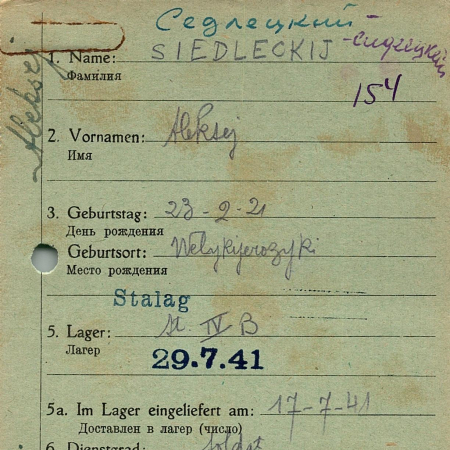 Седлецкий
1. Name: SIEDLECKIJ - Сидлецкий
Фамилия
154
Aleksej
2. Vornamen: Aleksej
Имя
3. Geburtstag: 23-2-21
День рождения
Geburtsort: Welykijerozyki
Место рождения
Stalag
5. Lager: St. IV B
Лагер
29.7.41
5a. Im Lager eingeliefert am: 17-7-41
Доставлен в лагер (число)
6. Dienstgrad: Soldat